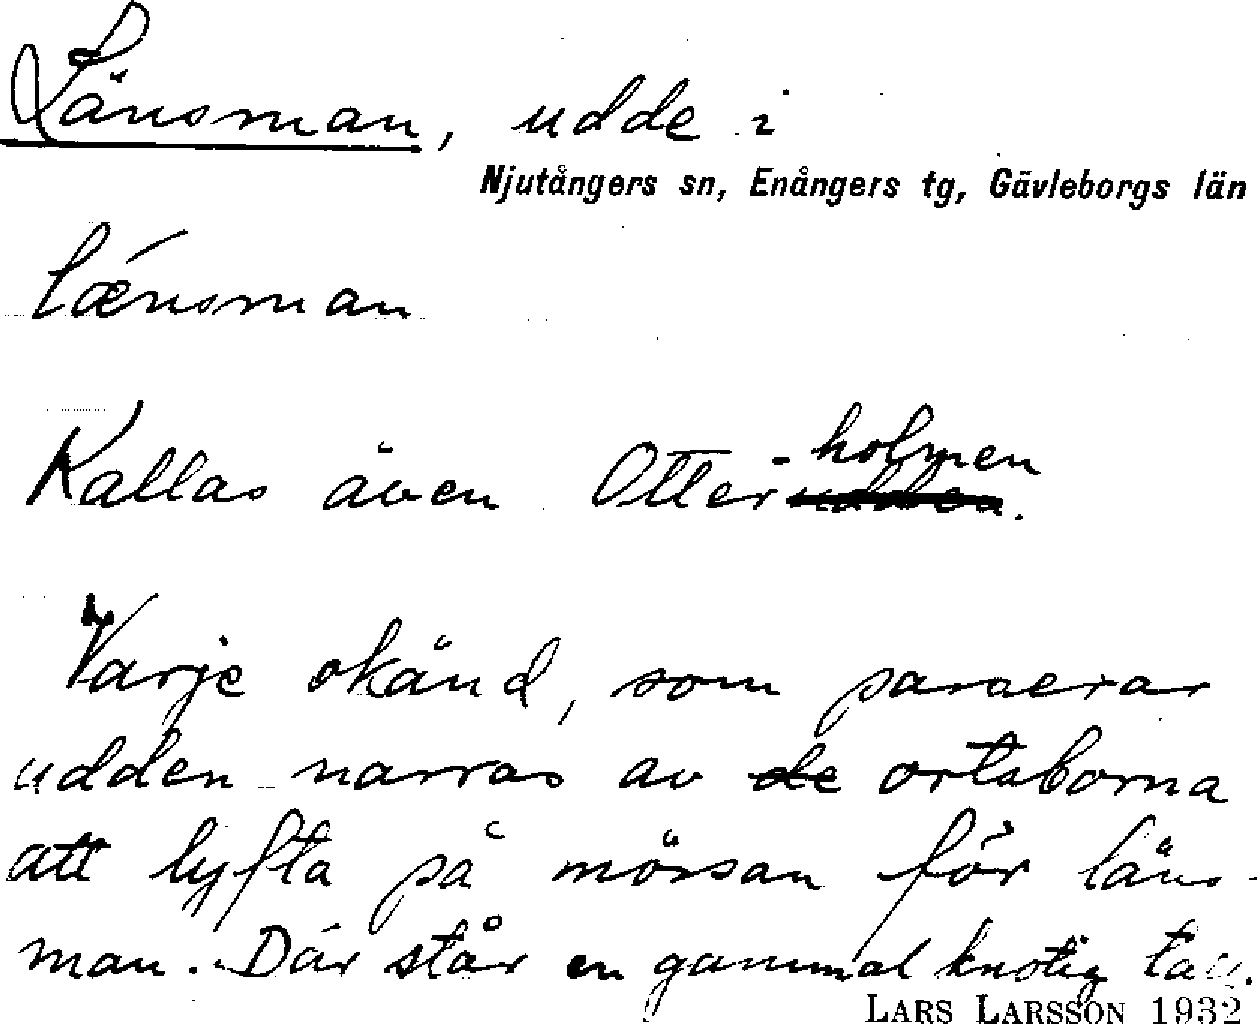 Länsman, udde i
Njutångers sn, Enångers tg, Gävleborgs län
lǽnsman
Kallas även Otter-holmen
udden.
Varje okänd, som passerar
udden narras av de ortsborna
att lyfta på mössan för läns-
man. Där står en gammal knotig tall.
LARS LARSSON 1932